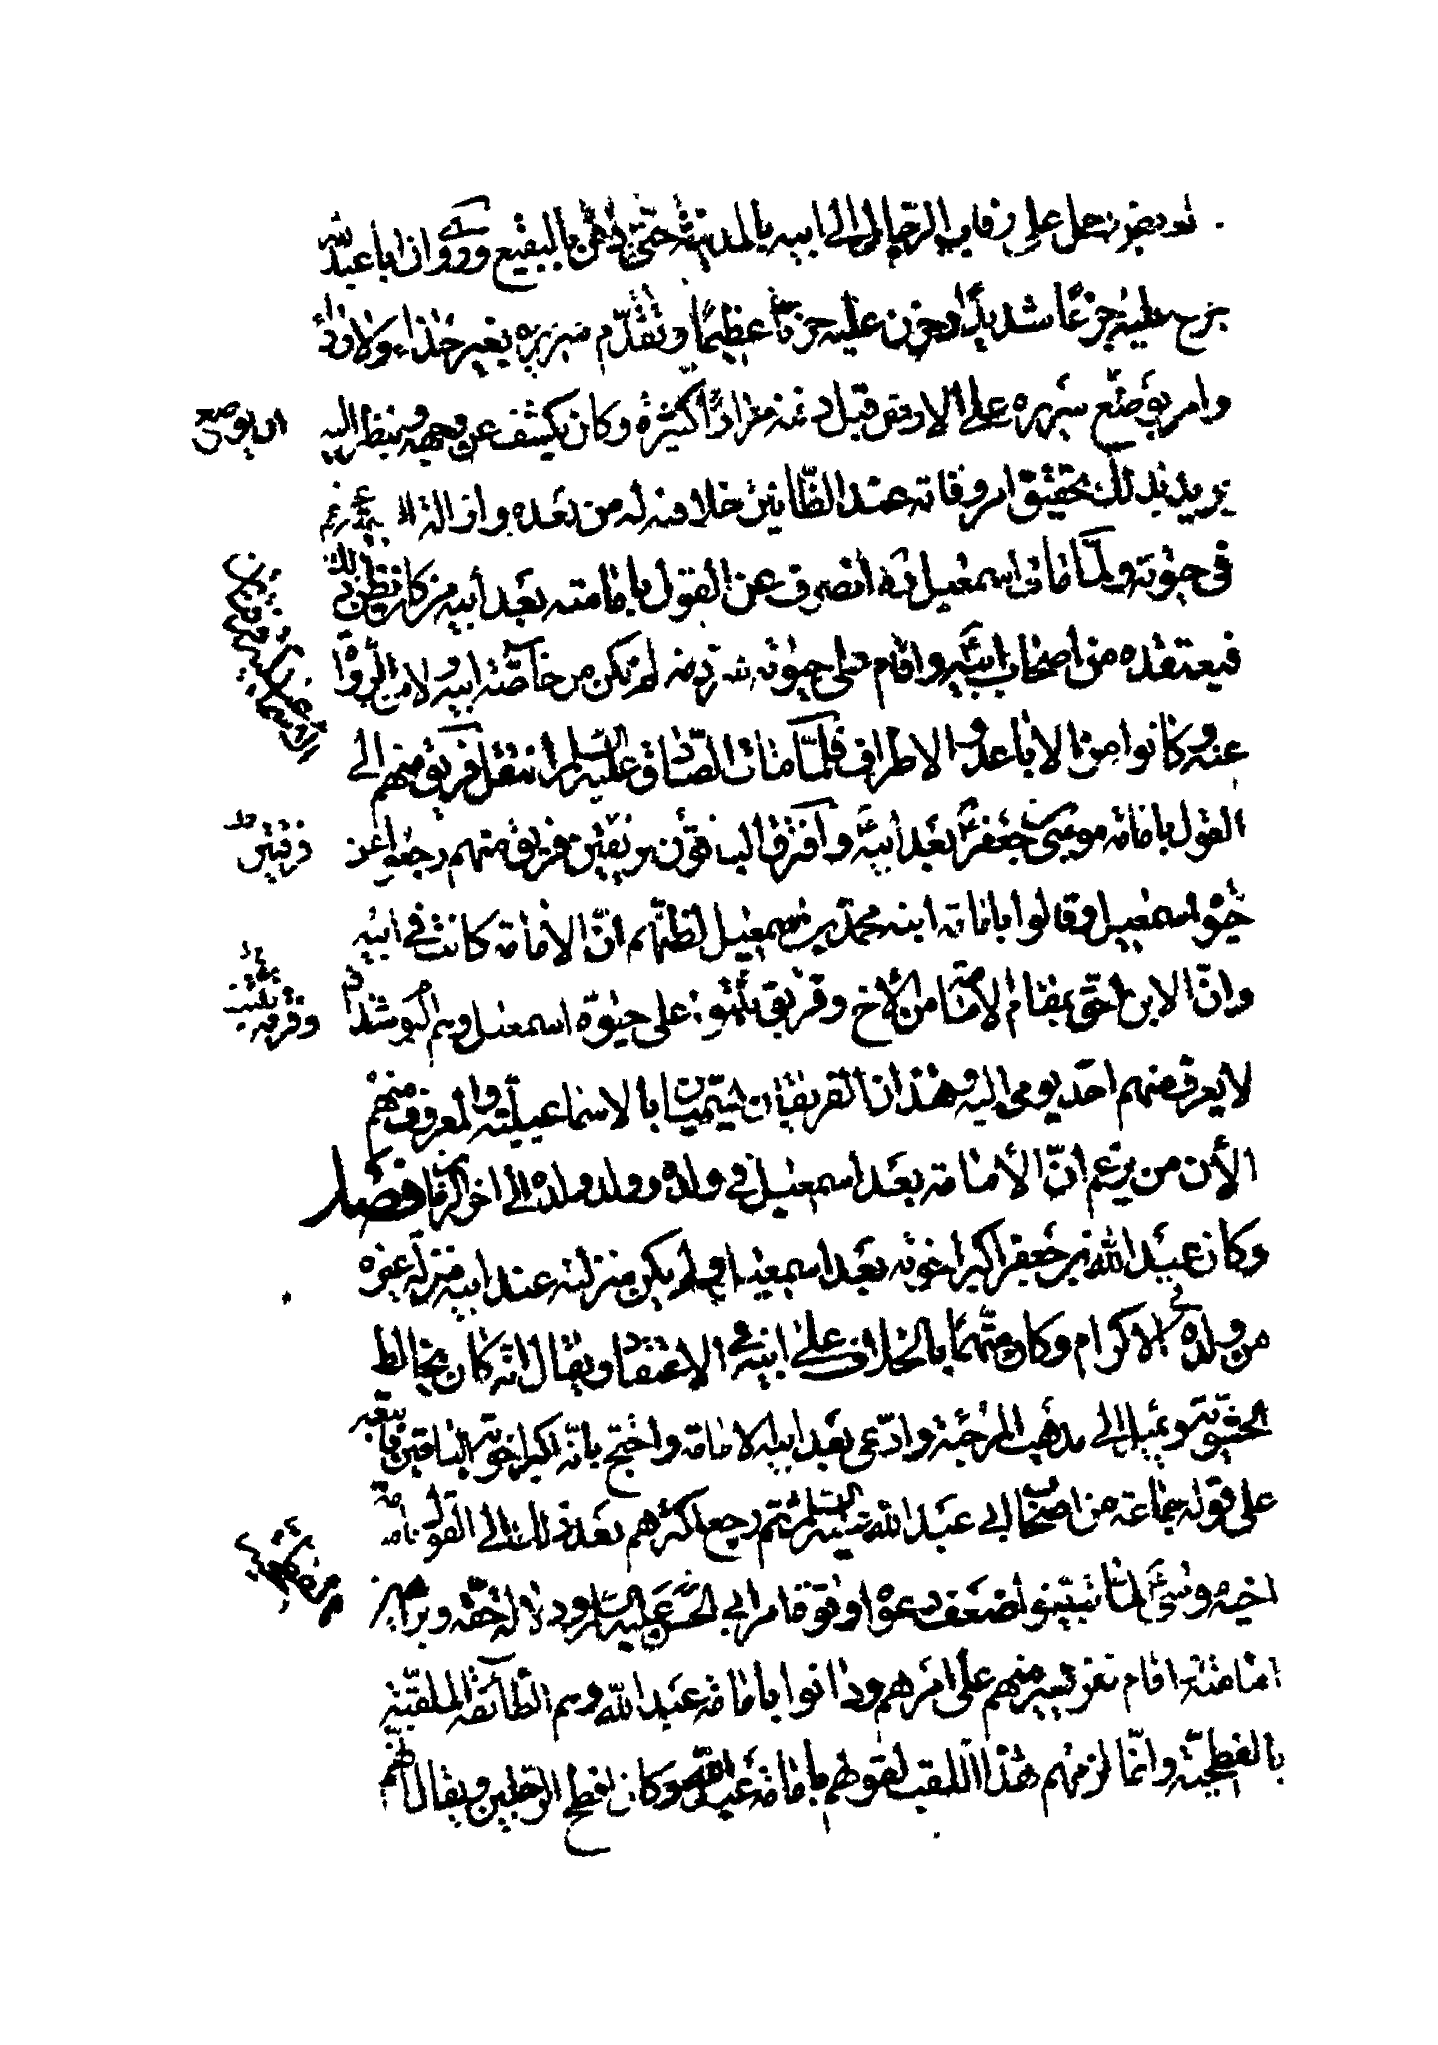 بالعريض وحمل على رقاب الرجال الى ابيه بالمدينة حتى دفن بالبقيع وروى ان ابا عبد الله
جزع عليه جزعًا شديدًا وحزن عليه حزنًا عظيمًا وتقدّم سريره بغير حذاء ولا رداء
وامر بوضع سريره على الارض قبل دفنه مرارًا كثيرة وكان يكشف عن وجهه وينظر اليه
يريد بذلك تحقيق امر وفاته عند الظانين خلافته له من بعده وازالة الشبهة عنهم
في حيوته ولمّا مات اسمعيل ره انصرف عن القول بامامته بعد ابيه من كان يظن ذلك
فيعتقده من اصحاب ابيه واقام على حيوته شرذمة لم تكن من خاصّة ابيه ولا من الرواة
عنه وكانوا من الاباعد والاطراف فلمّا مات الصّادق عليه السلم انتقل فريق منهم الى
القول بامامة موسى بن جعفر بعد ابيه وافترق الباقون فريقين فريق منهم رجعوا عن
حيوة اسمعيل وقالوا بامامة ابنه محمد بن اسمعيل لظنّهم انّ الامامة كانت في ابيه
وانّ الابن احقّ بمقام الامامة من الأخ وفريق ثبتوا على حيوة اسمعيل وهم اليوم شذاذ
لا يعرف منهم احد يومى اليه وهذان الفريقان يسمّيان بالاسماعيليّة والمعروف منهم
الأن من يزعم انّ الامامة بعد اسمعيل في ولده وولد ولده الى اخر الزمان فصل
وكان عبد الله بن جعفر اكبر اخوته بعد اسمعيل ولم يكن منزلته عند ابيه منزلة غيره
من ولده في الاكرام وكان متّهمًا بالخلاف على ابيه في الاعتقاد ويقال انّه كان يخالط
الحشويّة ويميل الى مذهب المرجئة وادّعى بعد ابيه الامامة واحتج بانّه اكبر اخوته الباقين فاتبعه
على قوله جماعة من اصحاب ابي عبد الله عليه السلم ثم رجع اكثرهم بعد ذلك الى القول بامامة
اخيه موسى لمّا تبيّنوا ضعف دعواه وقوة امر ابي الحسن عليه السلم ودلالة حقّه وبراهين
امامته واقام نفر يسير منهم على امرهم ودانوا بامامة عبد الله وهم الطّائفة الملقّبة
بالفطحيّة وانّما لزمهم هذا اللقب لقولهم بامامة عبد الله وكان افطح الرّجلين ويقال انّهم
ان يوضع
فرقتين
وفرقة